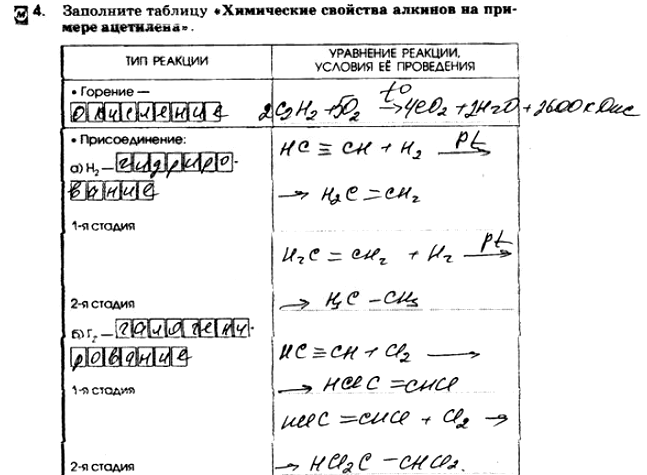 4. Заполните таблицу «Химические свойства алкинов на при-
мере ацетилена».
ТИП РЕАКЦИИ
УРАВНЕНИЕ РЕАКЦИИ,
УСЛОВИЯ ЕЁ ПРОВЕДЕНИЯ
• Горение —
окисление
2C2H2 + 5O2 t0→ 4CO2 + 2H2O + 2600 кДж
• Присоединение:
а) H2 — гидриро-
вание
HC≡CH + H2 Pt→
→ H2C=CH2
1-я стадия
H2C=CH2 + H2 Pt→
2-я стадия
→ H3C-CH3
б) Г2 — галогени-
рование
HC≡CH + Cl2 →
1-я стадия
→ HClC=CHCl
HClC=CHCl + Cl2 →
2-я стадия
→ HCl2C-CHCl2.